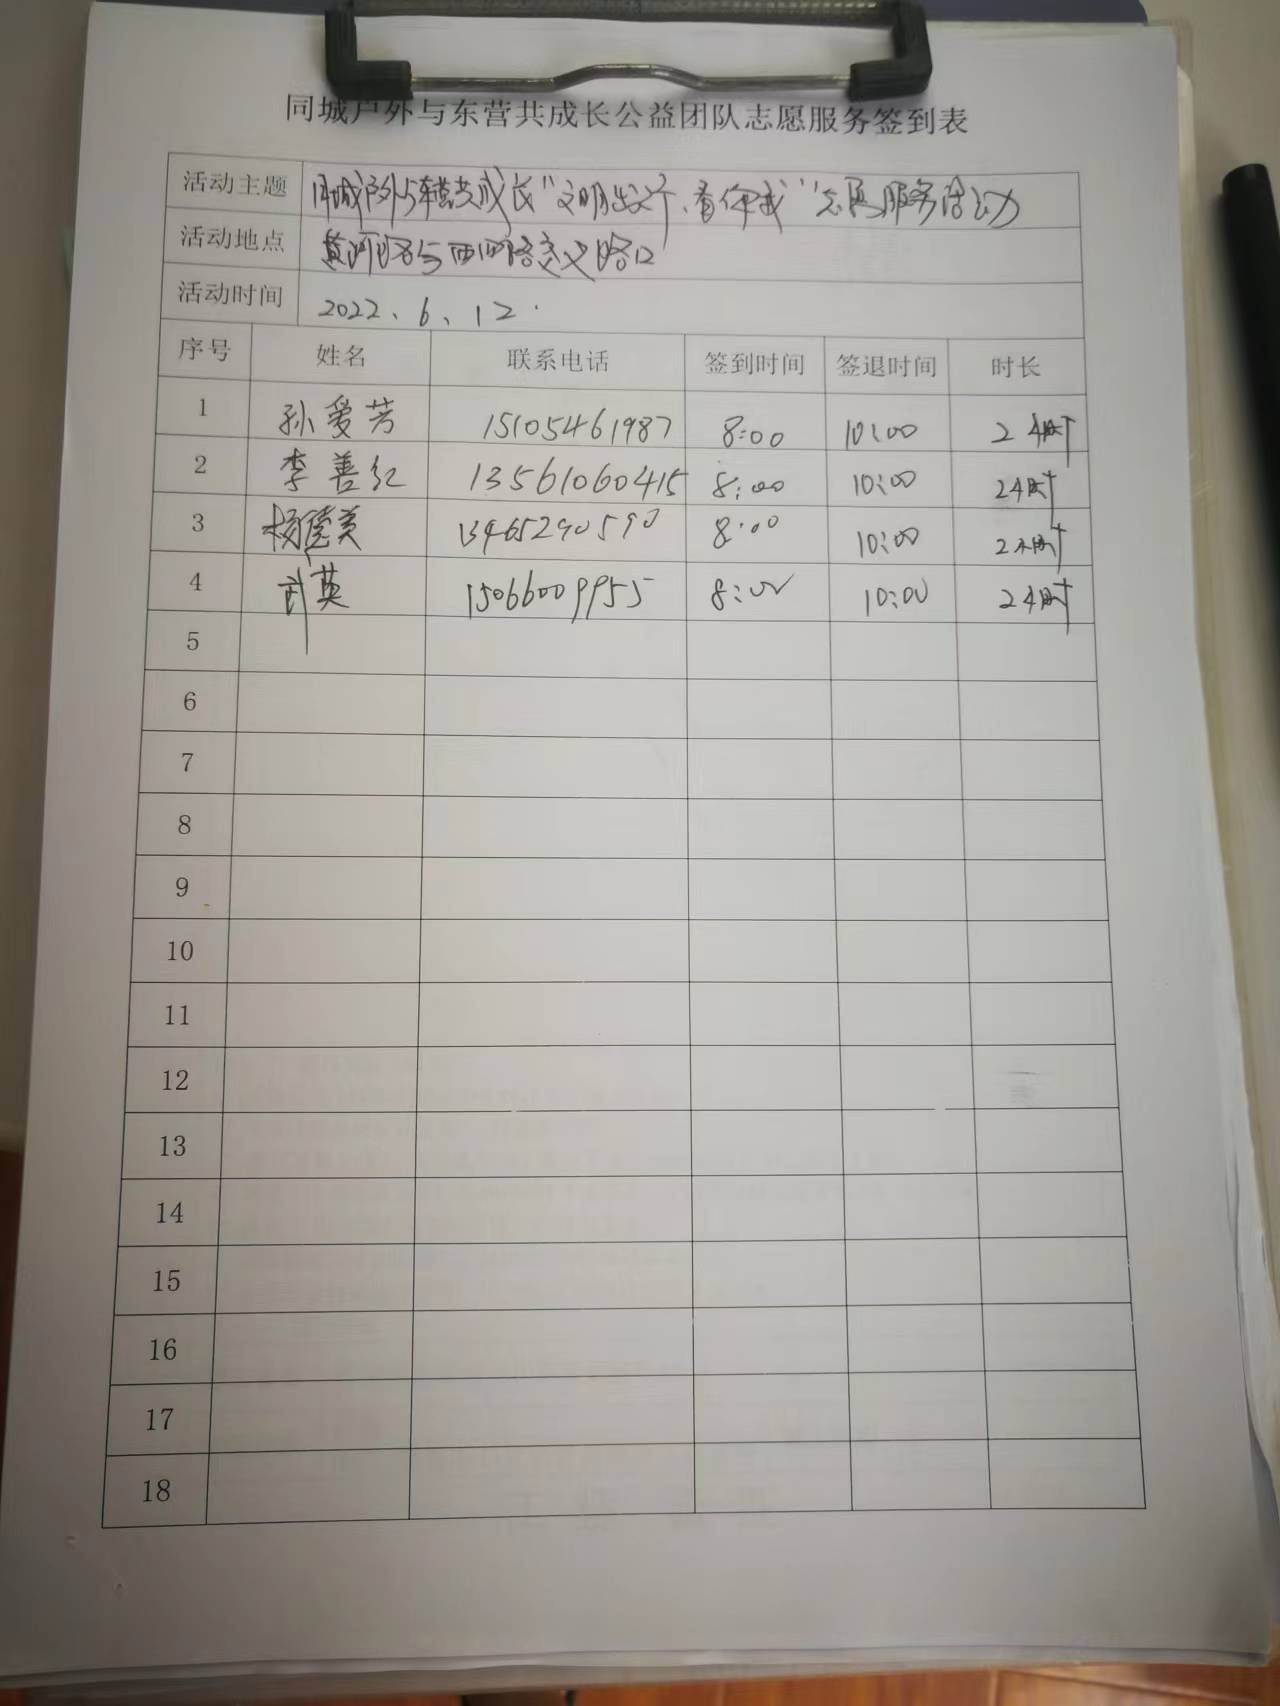 同城户外与东营共成长公益团队志愿服务签到表
活动主题 同城户外与东营共成长“文明出行、看你我”志愿服务活动
活动地点 黄河路与西四路交叉路口
活动时间 2022、6、12.
序号 姓名 联系电话 签到时间 签退时间 时长
1 孙爱芳 15105461987 8:00 10:00 2小时
2 李善红 13561060415 8:00 10:00 2小时
3 杨美 13465290590 8:00 10:00 2小时
4 武英 15066009955 8:00 10:00 2小时
5
6
7
8
9
10
11
12
13
14
15
16
17
18